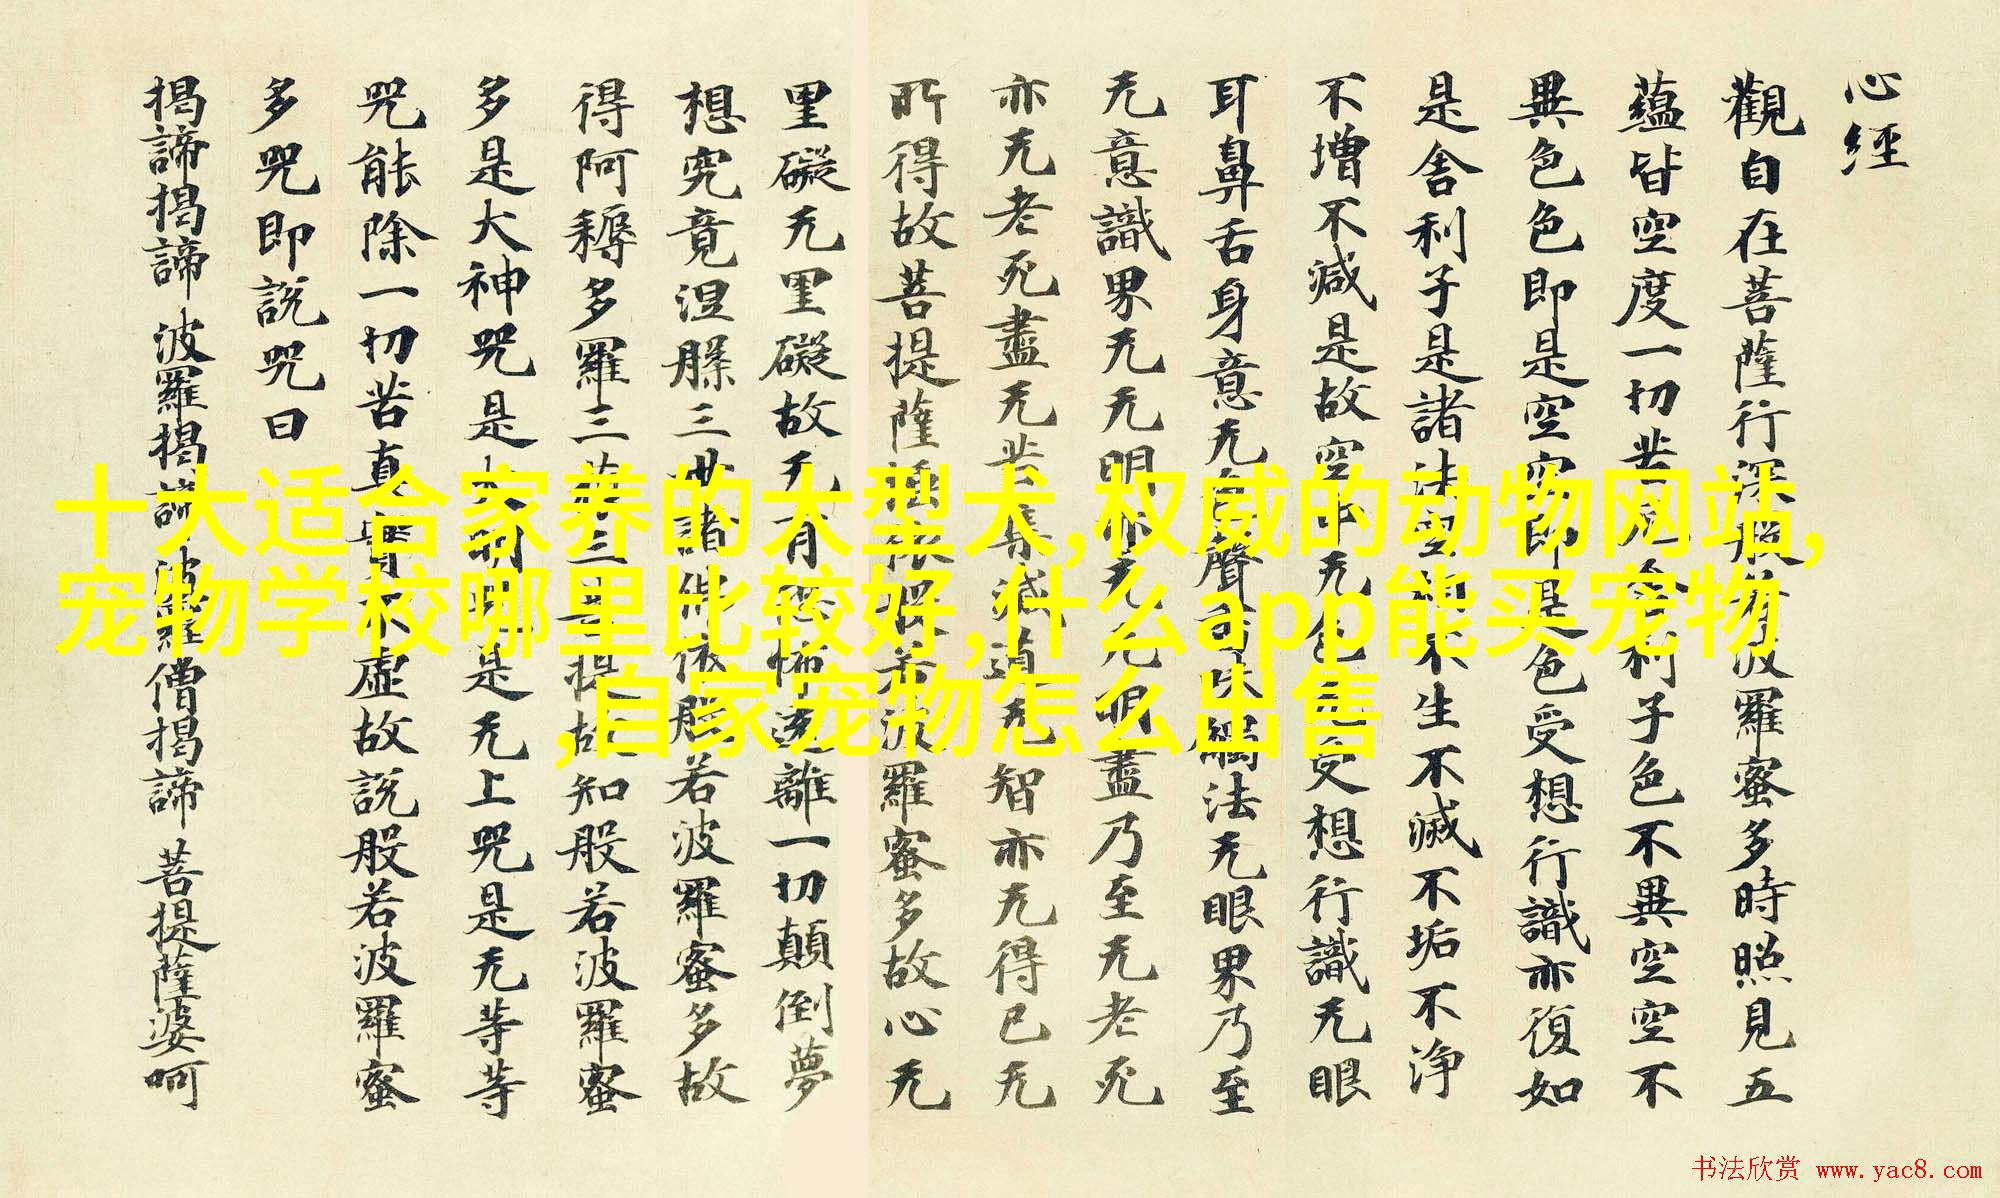 心經
觀自在菩薩行深般若波羅蜜多時照見五
蘊皆空度一切苦厄舍利子色不異空空不
異色色即是空空即是色受想行識亦復如
是舍利子是諸法空相不生不滅不垢不净
不增不減是故空中无色无受想行識无眼
耳鼻舌身意无色聲香味觸法无眼界乃至
无意識界无无明亦无无明盡乃至无老死
亦无老死盡无苦集滅道无智亦无得已无
所得故菩提薩埵依般若波羅蜜多故心无
罣礙无罣礙故无有恐怖遠離一切顛倒夢
想究竟涅槃三世諸佛依般若波羅蜜多故
得阿耨多羅三藐三菩提故知般若波羅蜜
多是大神咒是大明咒是无上咒是无等等
咒能除一切苦真實不虛故說般若波羅蜜
多咒即說咒曰
揭諦揭諦 波羅揭諦 波羅僧揭諦 菩提薩婆呵
十大适合家养的大型犬,权威的动物网站,
宠物学校哪里比较好,什么app能买宠物
,自家宠物怎么出售
书法欣赏 www.yac8.com